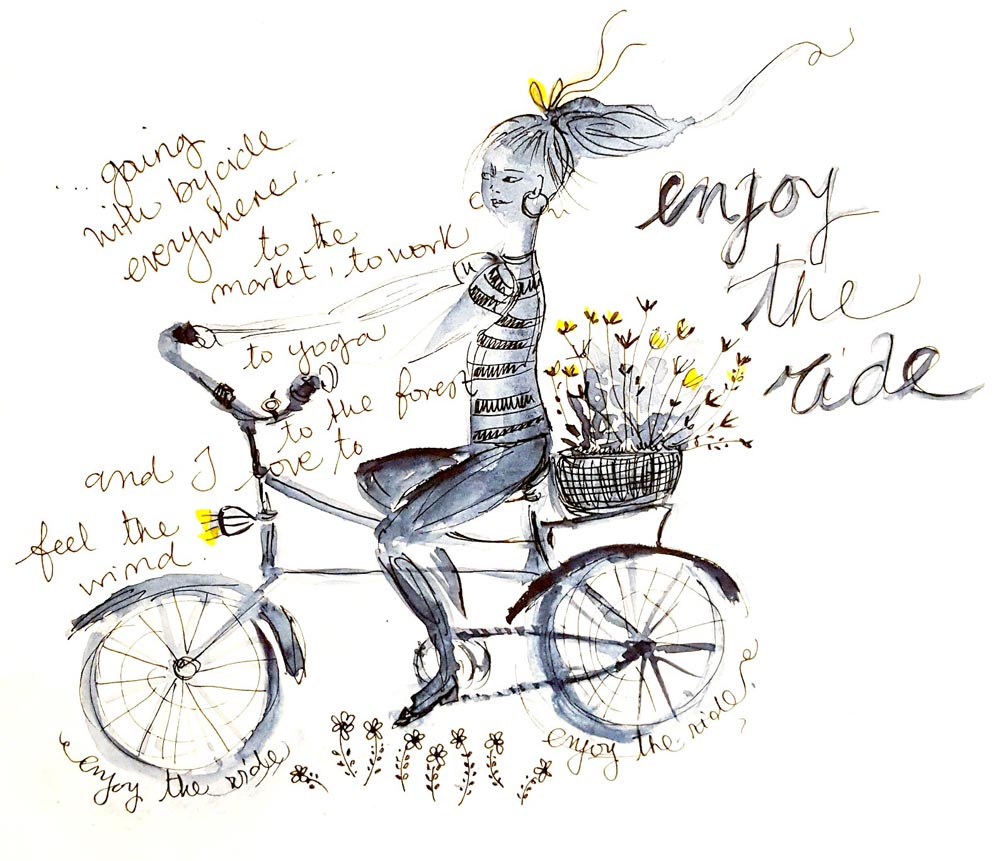 ... going
with bycicle
everywhere...
to the
market, to work
to yoga
to the forest
and I love to
feel the
wind.
enjoy
the
ride
enjoy the ride
enjoy the ride